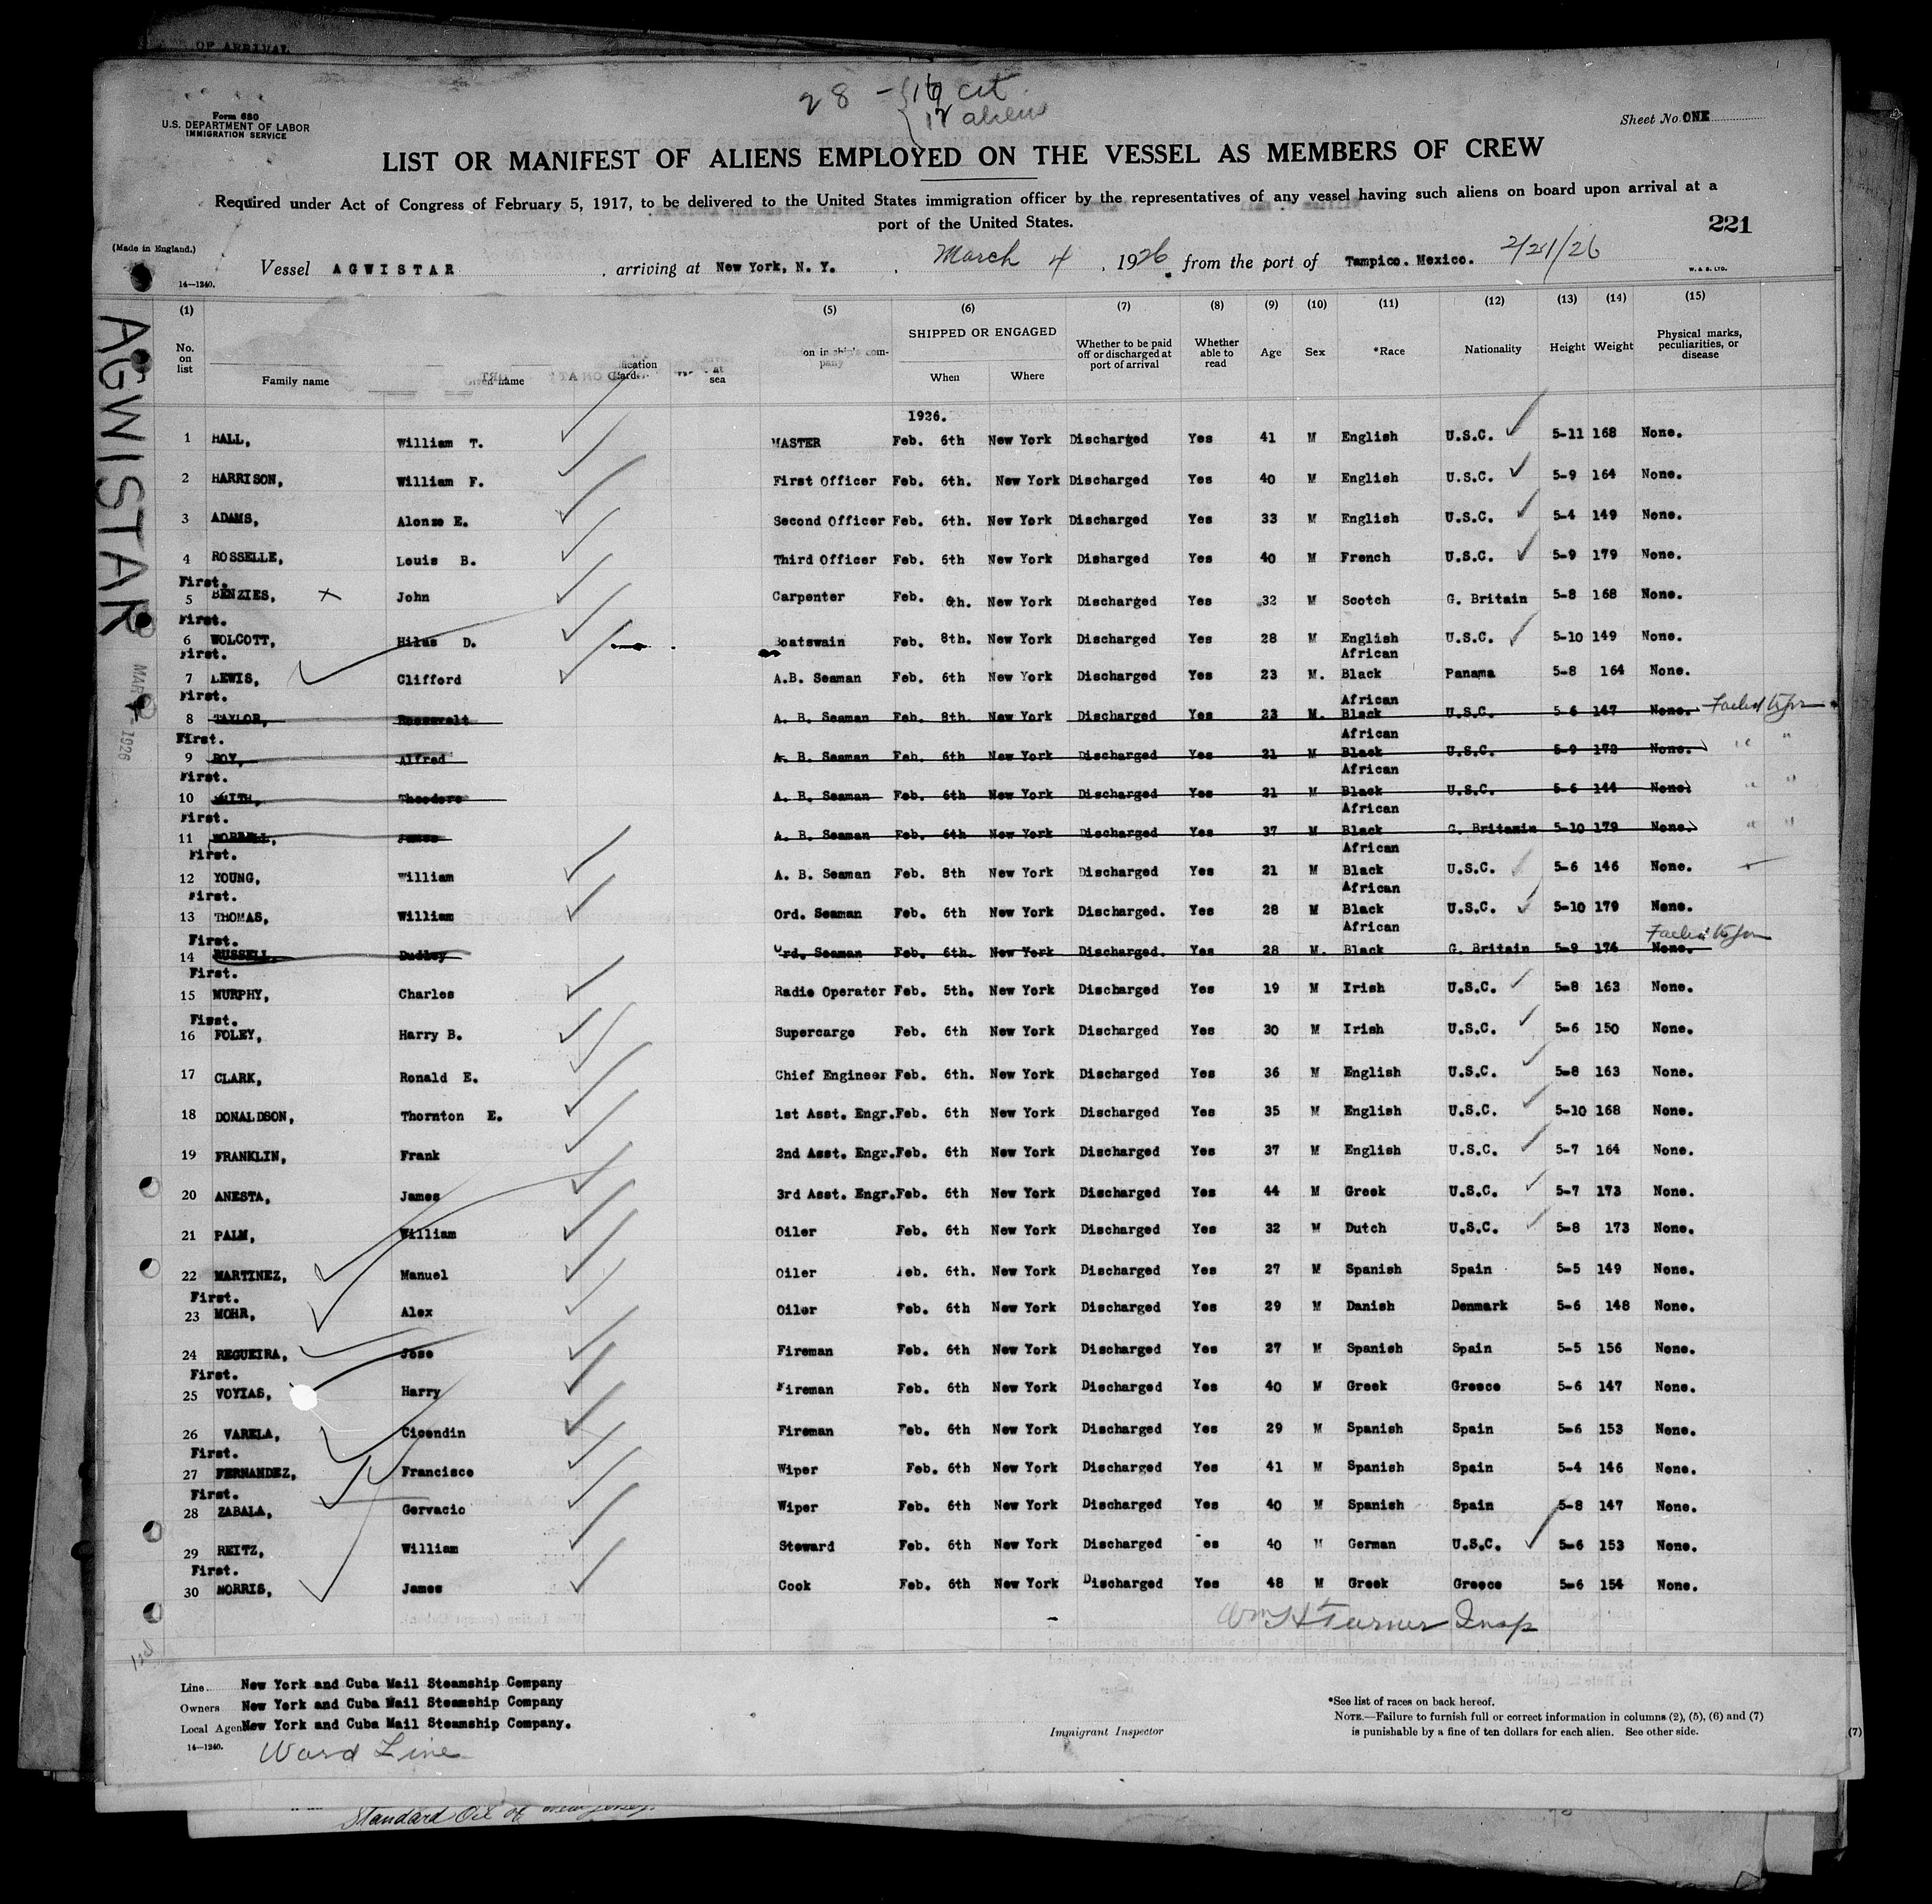 OF ARRIVAL
28 - { 16 cit.
12 aliens
Form 680
U.S. DEPARTMENT OF LABOR
IMMIGRATION SERVICE
Sheet No. ONE
LIST OR MANIFEST OF ALIENS EMPLOYED ON THE VESSEL AS MEMBERS OF CREW
Required under Act of Congress of February 5, 1917, to be delivered to the United States immigration officer by the representatives of any vessel having such aliens on board upon arrival at a
port of the United States.
221
(Made in England.)
Vessel AGWISTAR , arriving at New York, N. Y. , March 4 , 1926 from the port of Tampico. Mexico. 2/21/26
14—1240.
W. & S. LTD.
AGWISTAR
MAR 4 1926
(1) (5) (6) (7) (8) (9) (10) (11) (12) (13) (14) (15)
No. on list Family name Given name sea pany SHIPPED OR ENGAGED When Where Whether to be paid off or discharged at port of arrival Whether able to read Age Sex *Race Nationality Height Weight Physical marks, peculiarities, or disease
1926.
1 HALL, William T. MASTER Feb. 6th New York Discharged Yes 41 M English U.S.C. 5-11 168 None.
2 HARRISON, William F. First Officer Feb. 6th. New York Discharged Yes 40 M English U.S.C. 5-9 164 None.
3 ADAMS, Alonzo E. Second Officer Feb. 6th. New York Discharged Yes 33 M English U.S.C. 5-4 149 None.
4 ROSSELLE, Louis B. Third Officer Feb. 6th New York Disharged Yes 40 M French U.S.C. 5-9 179 None.
First.
5 BENZIES, x John Carpenter Feb. 6th. New York Discharged Yes 32 M Scotch G. Britain 5-8 168 None.
First.
6 WOLCOTT, Hilas D. Boatswain Feb. 8th. New York Discharged Yes 28 M English U.S.C. 5-10 149 None.
First. African
7 LEWIS, Clifford A.B. Seaman Feb. 6th New York Discharged Yes 23 M. Black Panama 5-8 164 None.
First. African
8 TAYLOR, Roosevelt A. B. Seaman Feb. 8th. New York Discharged Yes 23 M. Black U.S.C. 5-6 147 None. Failed to join
First. African
9 ROY, Alfred A. B. Seaman Feb. 6th New York Discharged Yes 21 M Black U.S.C. 5-9 172 None. " "
First. African
10 SMITH, Theodore A. B. Seaman Feb. 6th New York Discharged Yes 21 M Black U.S.C. 5-6 144 None. " "
First. African
11 MORRELL, James A. B. Seaman Feb. 6th New York Discharged Yes 37 M Black G. Britanin 5-10 179 None. " "
First. African
12 YOUNG, William A. B. Seaman Feb. 8th New York Discharged Yes 21 M Black U.S.C. 5-6 146 None.
First. African
13 THOMAS, William Ord. Seaman Feb. 6th New York Discharged. Yes 28 M Black U.S.C. 5-10 179 None.
First. African Failed to join
14 RUSSELL, Dudley Ord. Seaman Feb. 6th. New York Discharged. Yes 28 M. Black G. Britain 5-9 174 None.
First.
15 MURPHY, Charles Radio Operator Feb. 5th. New York Discharged Yes 19 M Irish U.S.C. 5-8 163 None.
First.
16 FOLEY, Harry B. Supercargo Feb. 6th New York Discharged Yes 30 M Irish U.S.C. 5-6 150 None.
17 CLARK, Ronald E. Chief Engineer Feb. 6th. New York Discharged Yes 36 M English U.S.C. 5-8 163 None.
18 DONALDSON, Thornton E. 1st Asst. Engr. Feb. 6th New York Discharged Yes 35 M English U.S.C. 5-10 168 None.
19 FRANKLIN, Frank 2nd Asst. Engr. Feb. 6th New York Discharged Yes 37 M English U.S.C. 5-7 164 None.
20 ANESTA, James 3rd Asst. Engr. Feb. 6th New York Discharged Yes 44 M Greek U.S.C. 5-7 173 None.
21 PALM, William Oiler Feb. 6th New York Discharged Yes 32 M Dutch U.S.C. 5-8 173 None.
22 MARTINEZ, Manuel Oiler Feb. 6th. New York Discharged Yes 27 M Spanish Spain 5-5 149 None.
First.
23 MOHR, Alex Oiler Feb. 6th New York Discharged Yes 29 M Danish Denmark 5-6 148 None.
24 REGUEIRA, Jose Fireman Feb. 6th New York Discharged Yes 27 M Spanish Spain 5-5 156 None.
First.
25 VOYIAS, Harry Fireman Feb. 6th New York Discharged Yes 40 M Greek Greece 5-6 147 None.
26 VARELA, Cicendin Fireman Feb. 6th New York Discharged Yes 29 M Spanish Spain 5-6 153 None.
First.
27 FERNANDEZ, Francisco Wiper Feb. 6th New York Discharged Yes 41 M Spanish Spain 5-4 146 None.
First.
28 ZABALA, Gervacio Wiper Feb. 6th New York Discharged Yes 40 M Spanish Spain 5-8 147 None.
29 REITZ, William Steward Feb. 6th New York Discharged es 40 M German U.S.C. 5-6 153 None.
First.
30 MORRIS, James Cook Feb. 6th New York Discharged Yes 48 M Greek Greece 5-6 154 None.
Wm H Turner Insp
Line New York and Cuba Mail Steamship Company
Owners New York and Cuba Mail Steamship Company
Local Agen New York and Cuba Mail Steamship Company.
14—1240.
Ward Line
Immigrant Inspector
*See list of races on back hereof.
NOTE.—Failure to furnish full or correct information in columns (2), (5), (6) and (7)
is punishable by a fine of ten dollars for each alien. See other side.
(7)
Standard Oil of New Jersey.